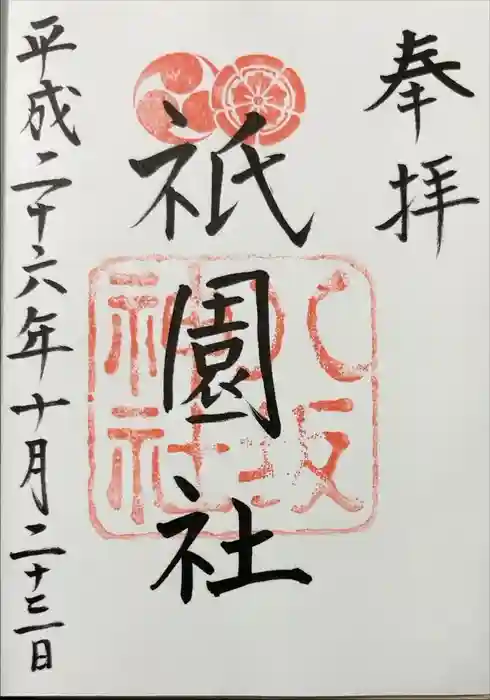 奉拝
祇園社
八坂
神社
平成二十六年十月二十三日